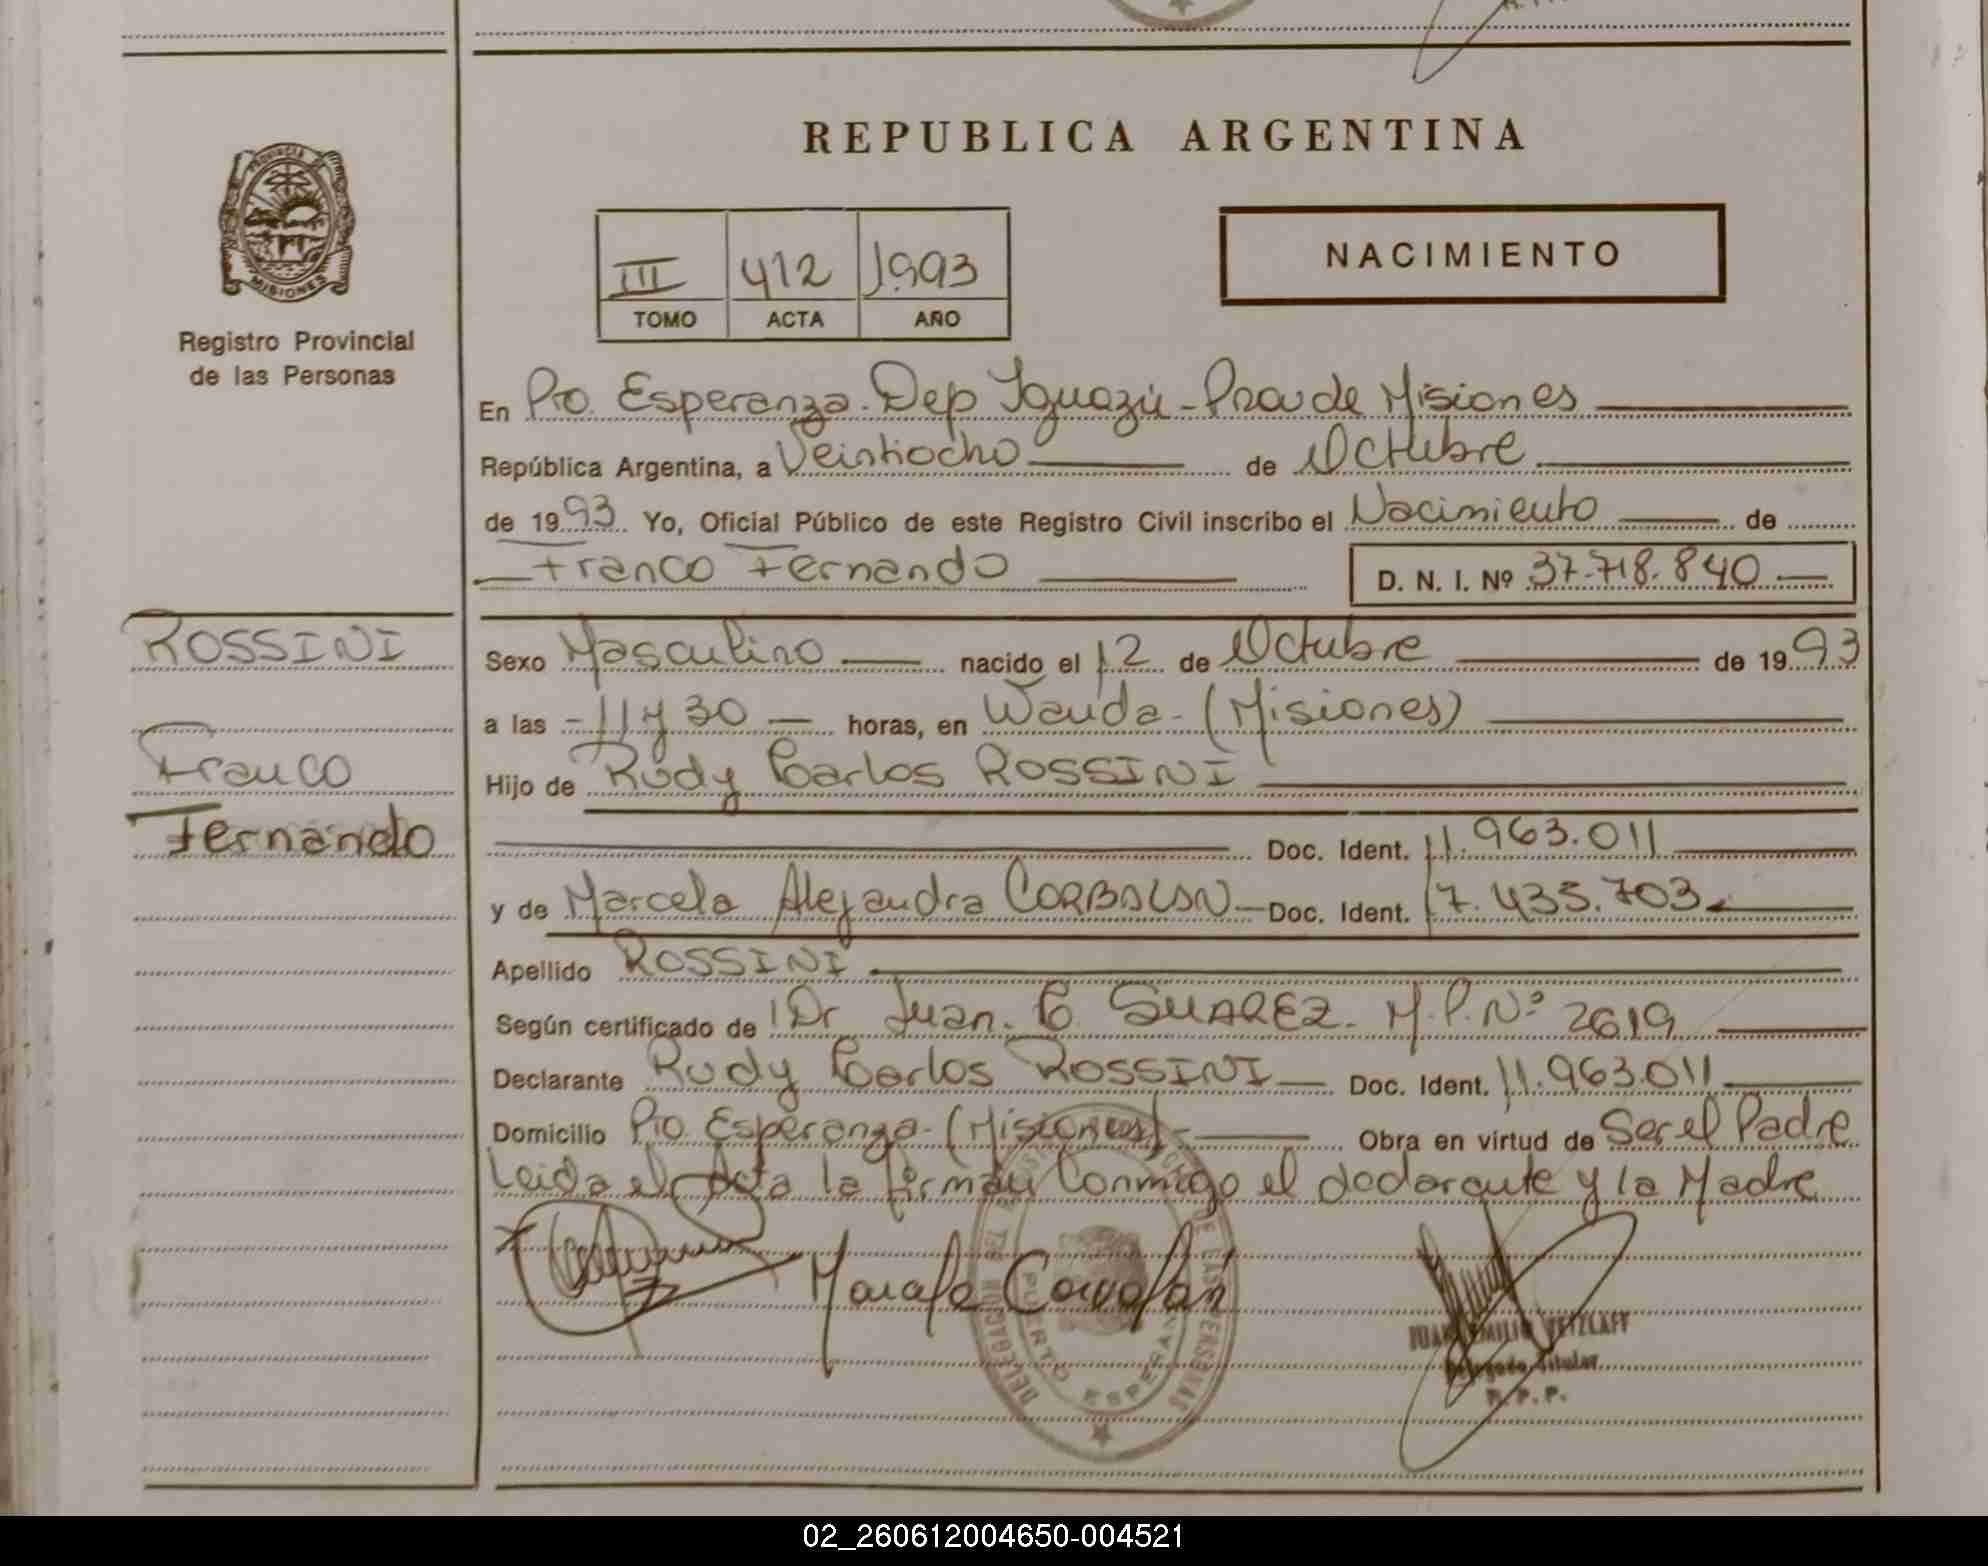 REPUBLICA ARGENTINA
PROVINCIA DE
MISIONES
Registro Provincial
de las Personas
NACIMIENTO
III 412 1993
TOMO ACTA AÑO
En Pto. Esperanza. Dep Iguazú - Prov de Misiones
República Argentina, a Veintiocho de Octubre
de 1993 Yo, Oficial Público de este Registro Civil inscribo el Nacimiento de
Franco Fernando D. N. I. Nº 37.718.840
ROSSINI
Franco
Fernando
Sexo Masculino nacido el 12 de Octubre de 1993
a las - 11 y 30 — horas, en Wanda - (Misiones)
Hijo de Rudy Carlos ROSSINI
Doc. Ident. 11.963.011
y de Marcela Alejandra CORBALAN — Doc. Ident. 17.435.703
Apellido ROSSINI
Según certificado de Dr Juan. C. SUAREZ. M.P. Nº 2619
Declarante Rudy Carlos ROSSINI Doc. Ident. 11.963.011
Domicilio Pto. Esperanza - (Misiones) - Obra en virtud de Ser el Padre
Leida el Acta la firman Conmigo el declarante y la Madre
Marcela Corvalán
JUAN EMILIO RETZLAFF
Delegado Titular
R.P.P.
PUERTO ESPERANZA
DE LAS PERSONAS
02_260612004650-004521